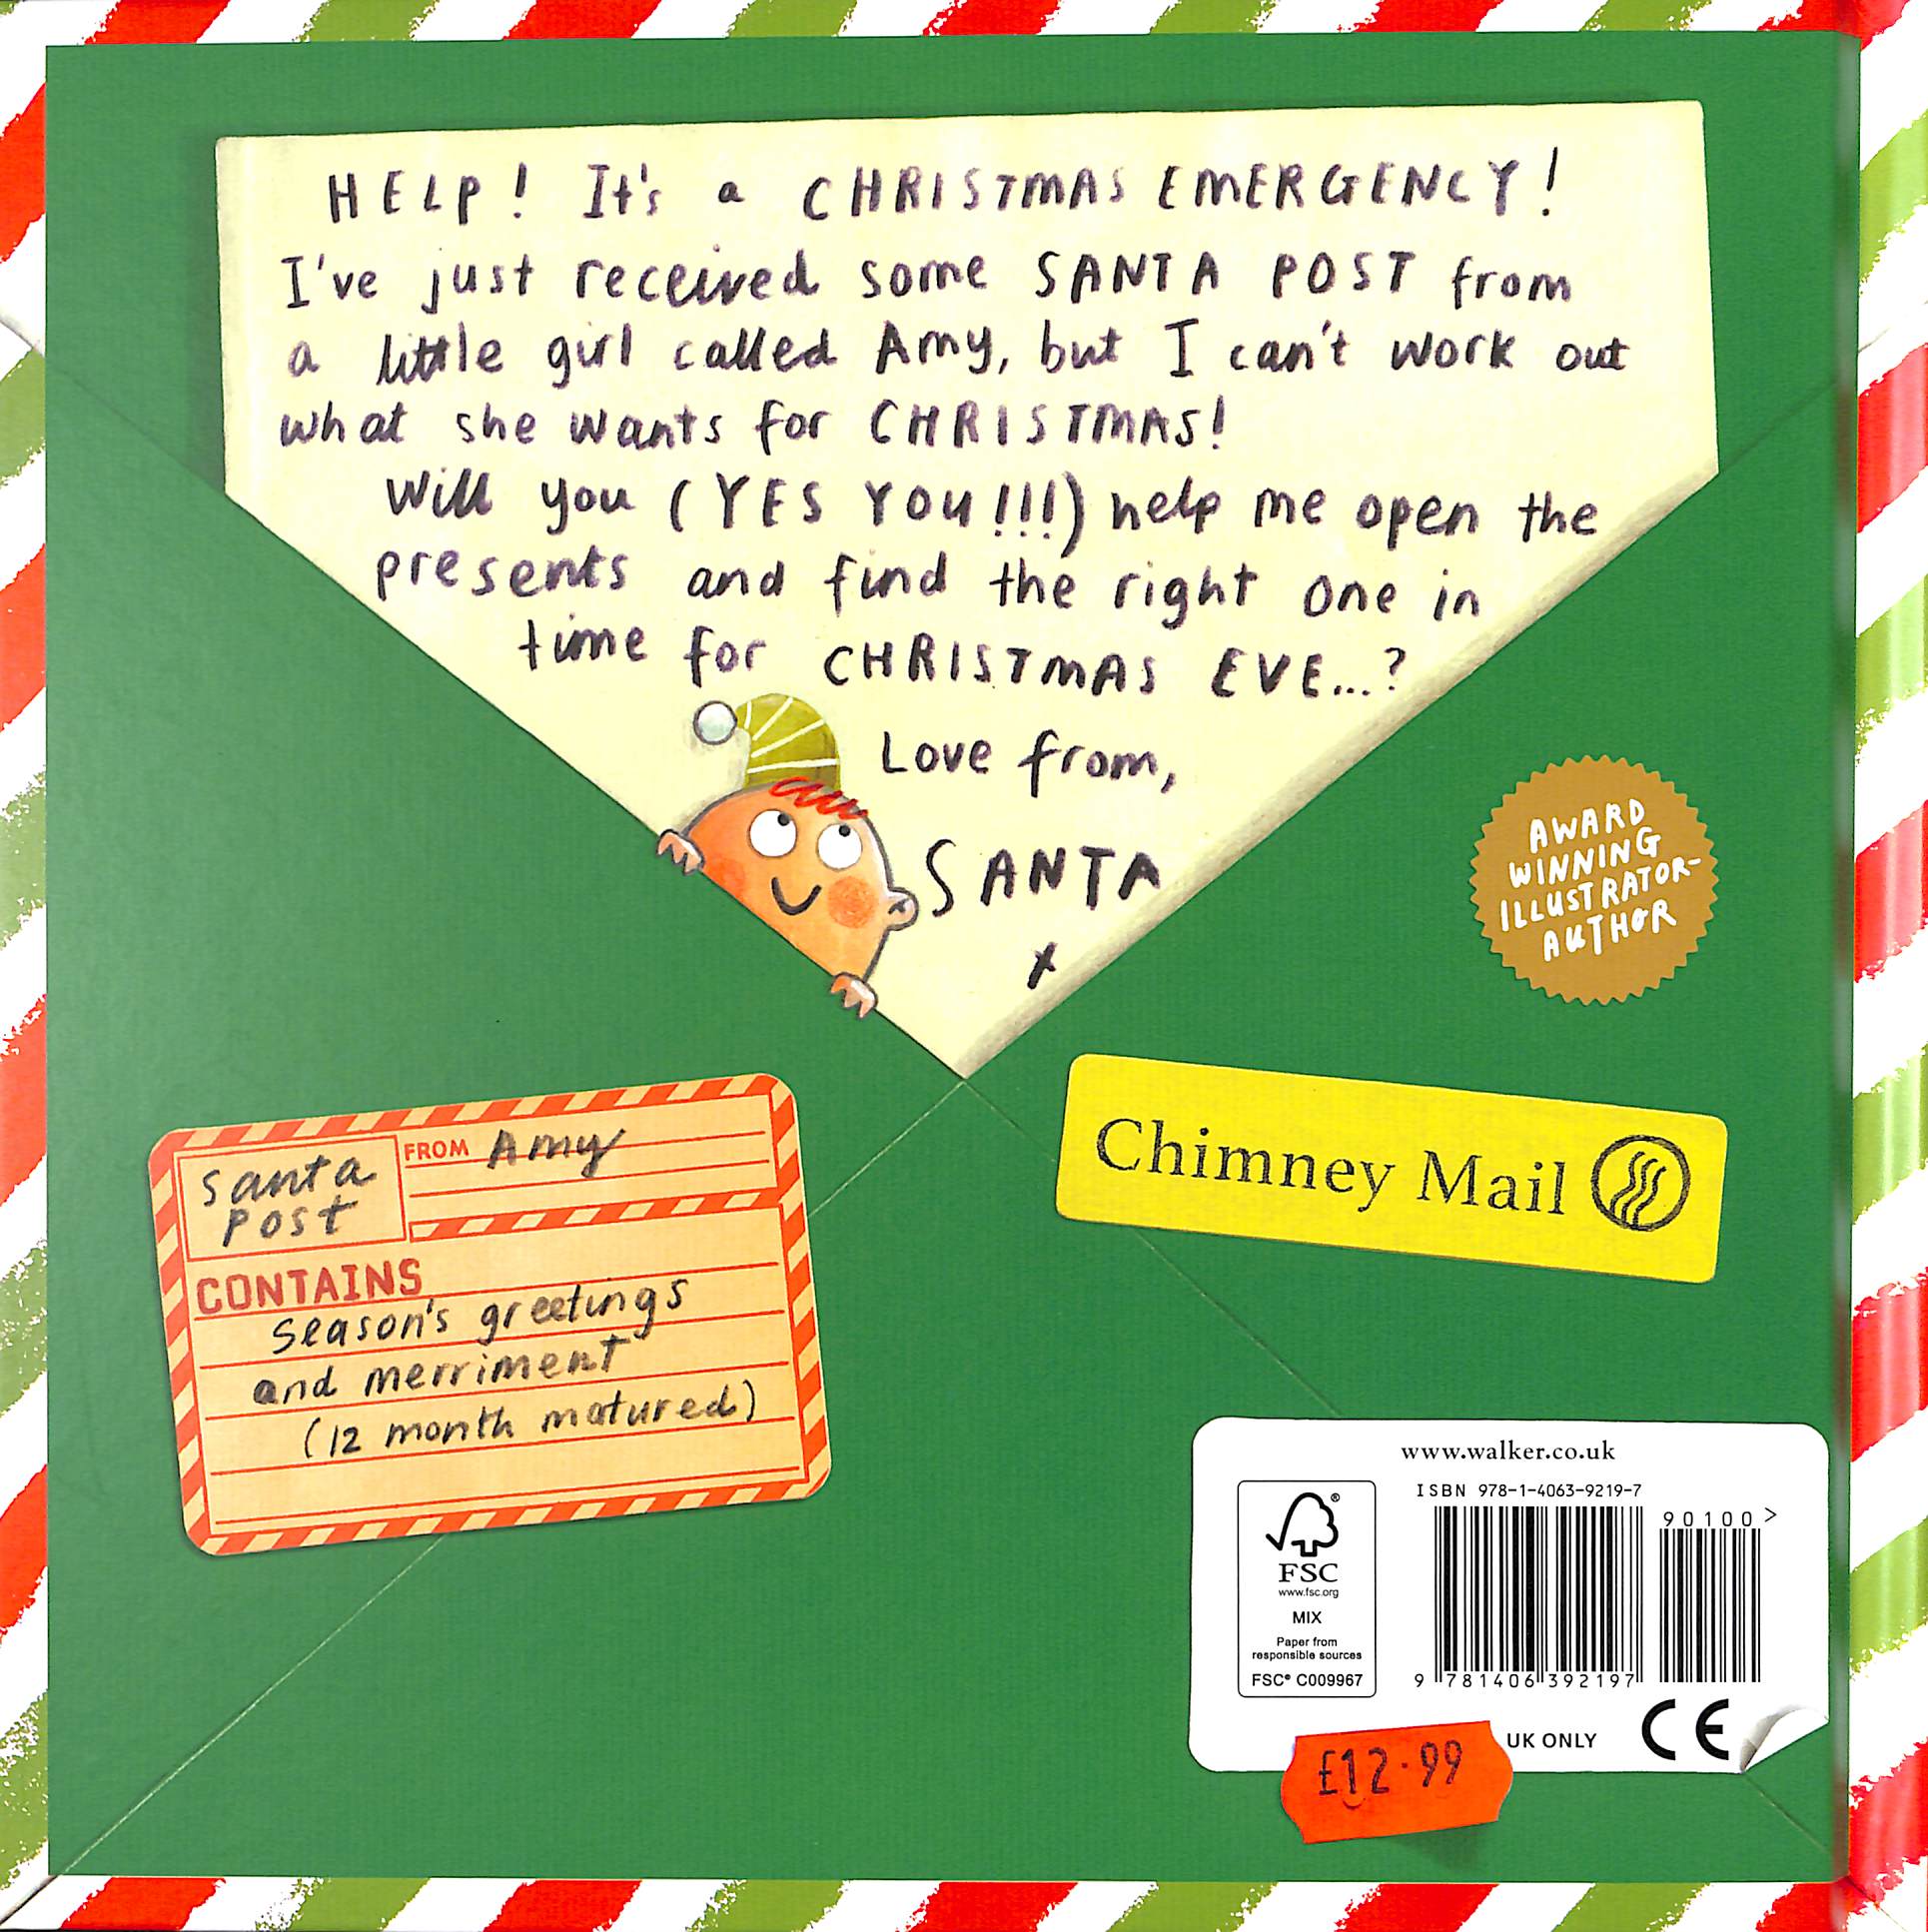 HELP! It's a CHRISTMAS EMERGENCY!
I've just received some SANTA POST from
a little girl called Amy, but I can't work out
what she wants for CHRISTMAS!
Will you (YES YOU!!!) help me open the
presents and find the right one in
time for CHRISTMAS EVE...?
Love from,
SANTA
x
AWARD
WINNING
ILLUSTRATOR-
AUTHOR
Santa
post
FROM Amy
CONTAINS
Season's greetings
and merriment
(12 month matured)
Chimney Mail
www.walker.co.uk
ISBN 978-1-4063-9219-7
90100>
FSC®
www.fsc.org
MIX
Paper from
responsible sources
FSC® C009967
9 781406 392197
UK ONLY
CE
£12.99